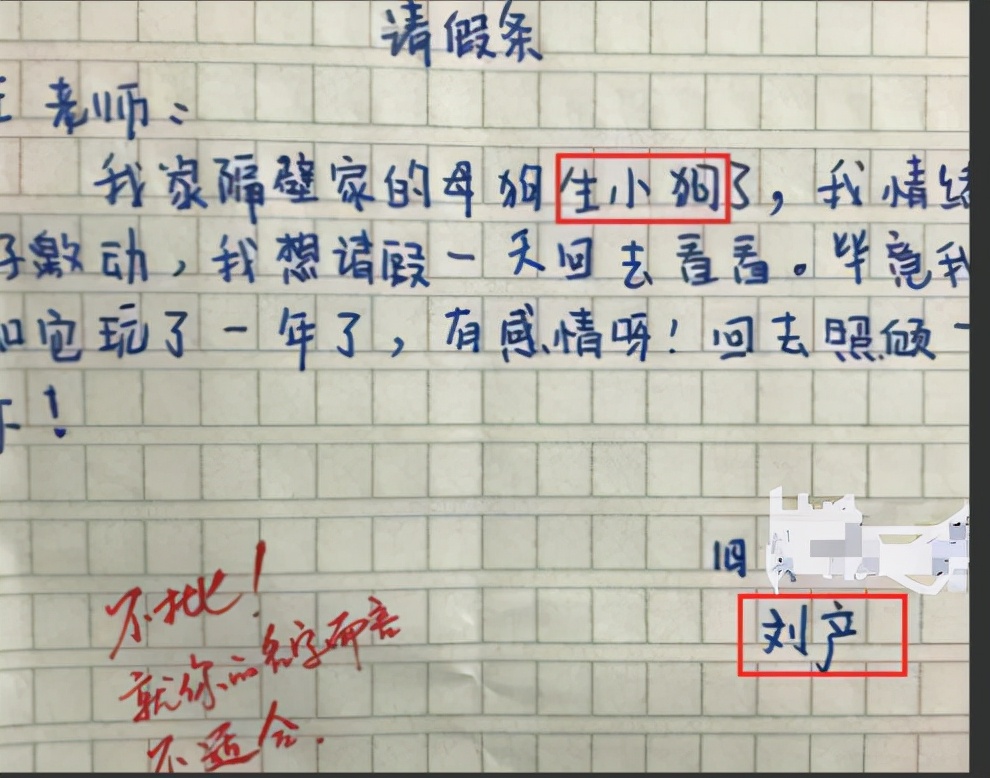 请假条
老师:
我家隔壁家的母狗生小狗了,我情绪
激动,我想请假一天回去看看。毕竟我
和它玩了一年了,有感情呀!回去照顾一
下!
旧
刘产
不批!
就你的名字而言
不适合.